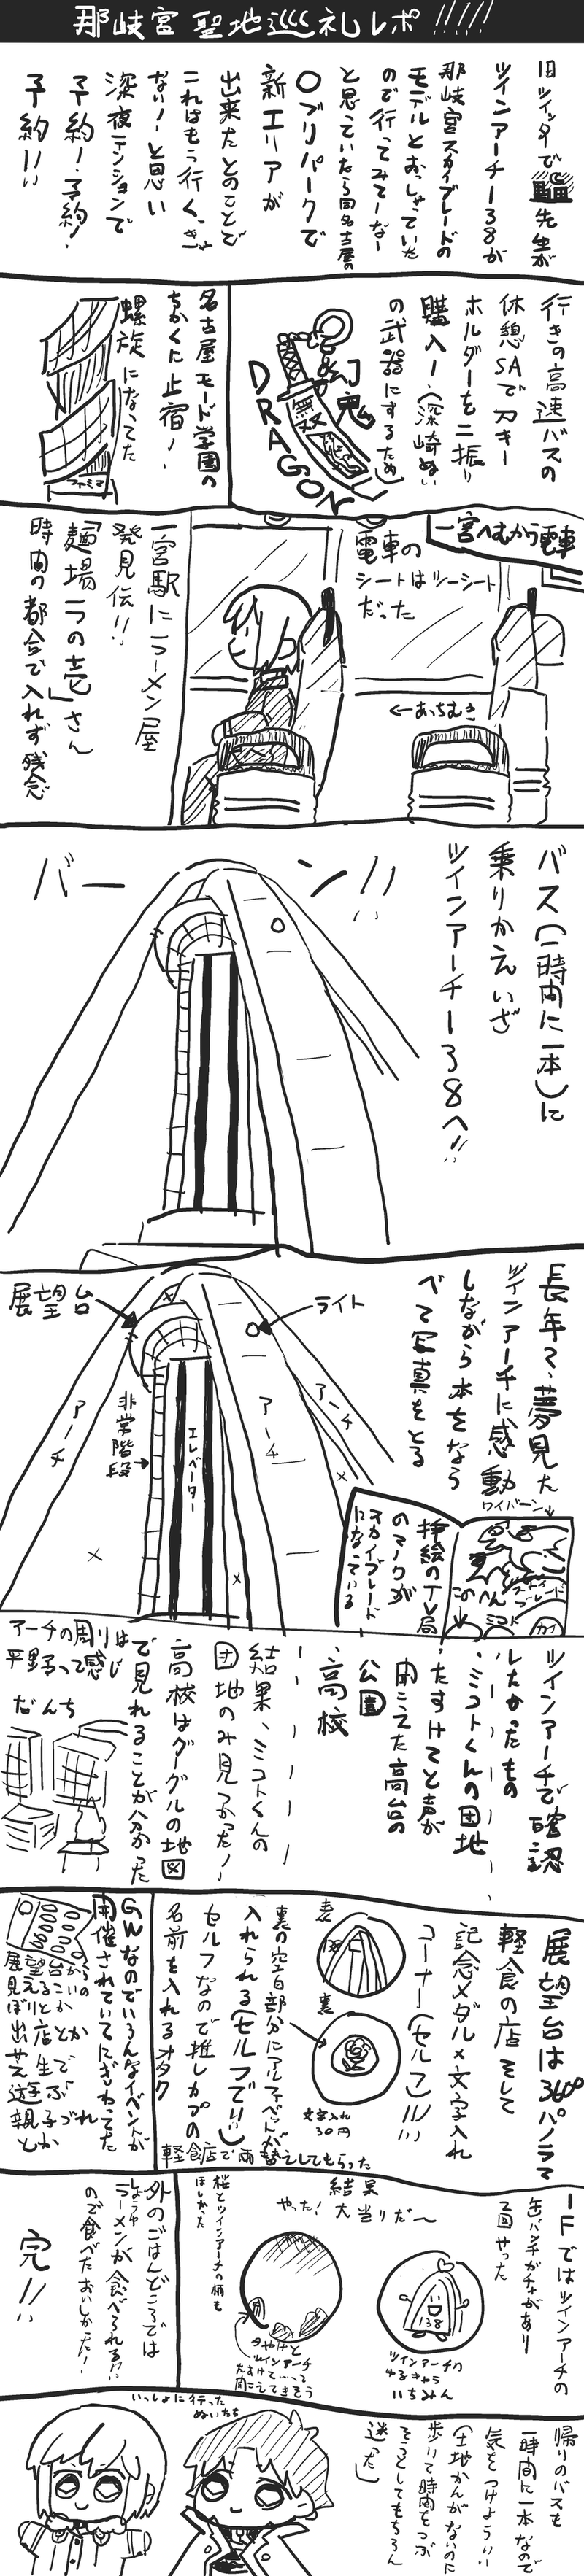 那岐宮 聖地巡礼レポ!!!!!
旧ツイッターで
先生が
ツインアーチ138が
那岐宮スカイブレードの
モデルとおっしゃっていた
ので行ってみてーなー
と思っていたら同名古屋の
○ブリパークで
新エリアが
出来たとのことで
これはもう行くっきゃ
ない!と思い
深夜テンションで
予約!予約!
予約!!
行きの高速バスの
休憩SAで刀キー
ホルダーを二振り
購入!(深崎ぬい
の武器にするため)
幻鬼
無双
DRAGON
名古屋モード学園の
ちかくに止宿!
螺旋になってた
ファミマ
一宮へむかう電車
電車の
シートはツーシート
だった
←あっちむき
一宮駅にラーメン屋
発見伝!!
「麺場一つの壱」さん
時間の都合で入れず残念
バス(一時間に一本)に
乗りかえいざ
ツインアーチ138へ!!
バーン!!
長年で、夢見た
ツインアーチに感動
しながら本をなら
べて写真をとる
展望台
ライト
アーチ
非常階段
エレベーター
アーチ
アーチ
ワイバーン
挿絵のTV局
のマークが
スカイブレード
になっている
スカイブレード
このへん
ツインアーチで確認
したかったもの
・ミコトくんの団地
・たすけてと声が
聞こえた高台の
公園
・高校
結果、ミコトくんの
団地のみ見つかった!
高校はグーグルの地図
で見れることが分かった
アーチの周りは
平野って感じ
だんち
展望台は360°パノラマ
軽食の店そして
記念メダル×文字入れ
コーナー(セルフ)!!!
表
裏
文字入れ
30円
裏の空白部分にアルファベットが
入れられる(セルフで!!)
セルフなので推しカプの
名前を入れるオタク
軽食店で両替えしてもらった
GWなのでいろんなイベントが
開催されていてにぎわってた
1Fではツインアーチの
缶バッチガチャがあり
2回やった
結果
やった!大当りだ〜
138
ツインアーチの
ゆるキャラ
いちみん
桜とツインアーチの柄も
ほしかった
夕やけと
ツインアーチ
たすけてって
聞こえてきそう
外のごはんどころでは
しょうゆ
ラーメンが食べられる!!
ので食べたおいしかった!
完!!
帰りのバスも
一時間に一本なので
気をつけよう!!
(土地かんがないのに
歩いて時間をつぶ
そうとしてもちろん
迷った)
いっしょに行った
ぬいたち